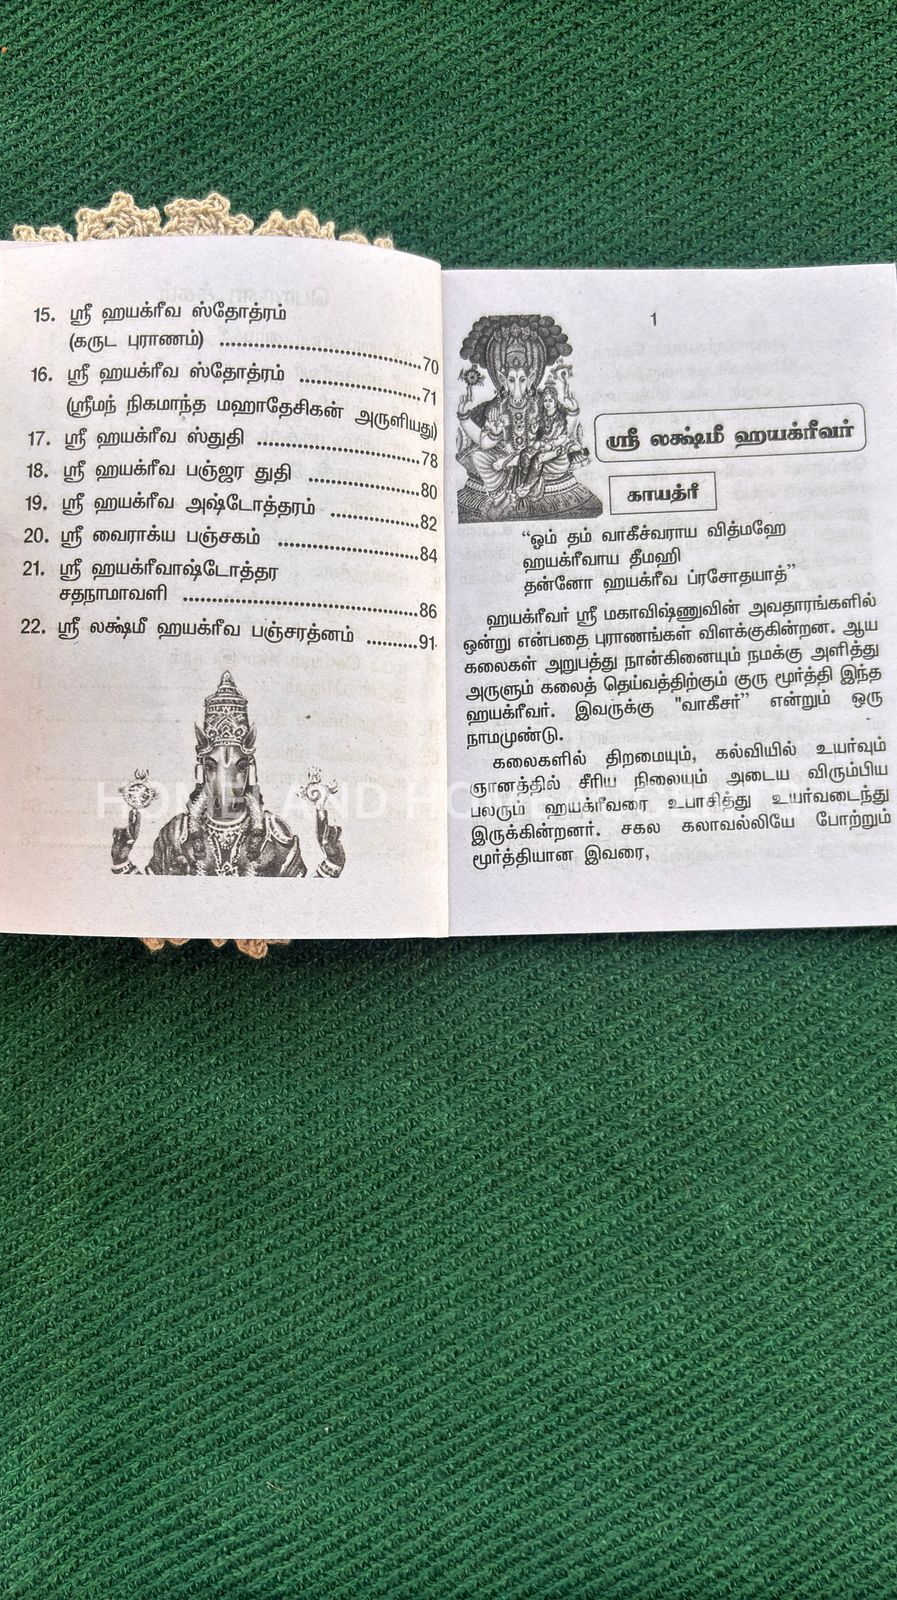 15. ஸ்ரீ ஹயக்ரீவ ஸ்தோத்ரம்
(கருட புராணம்) ........................................70
16. ஸ்ரீ ஹயக்ரீவ ஸ்தோத்ரம் ........................71
(ஸ்ரீமந் நிகமாந்த மஹாதேசிகன் அருளியது)
17. ஸ்ரீ ஹயக்ரீவ ஸ்துதி ................................78
18. ஸ்ரீ ஹயக்ரீவ பஞ்ஜர துதி ........................80
19. ஸ்ரீ ஹயக்ரீவ அஷ்டோத்தரம் ..................82
20. ஸ்ரீ வைராக்ய பஞ்சகம் ............................84
21. ஸ்ரீ ஹயக்ரீவாஷ்டோத்தர
சதநாமாவளி ..............................................86
22. ஸ்ரீ லக்ஷ்மீ ஹயக்ரீவ பஞ்சரத்னம் ..........91
1
ஸ்ரீ லக்ஷ்மீ ஹயக்ரீவர்
காயத்ரீ
“ஓம் தம் வாகீச்வராய வித்மஹே
ஹயக்ரீவாய தீமஹி
தன்னோ ஹயக்ரீவ ப்ரசோதயாத்”
ஹயக்ரீவர் ஸ்ரீ மகாவிஷ்ணுவின் அவதாரங்களில்
ஒன்று என்பதை புராணங்கள் விளக்குகின்றன. ஆய
கலைகள் அறுபத்து நான்கினையும் நமக்கு அளித்து
அருளும் கலைத் தெய்வத்திற்கும் குரு மூர்த்தி இந்த
ஹயக்ரீவர். இவருக்கு "வாகீசர்” என்றும் ஒரு
நாமமுண்டு.
கலைகளில் திறமையும், கல்வியில் உயர்வும்
ஞானத்தில் சீரிய நிலையும் அடைய விரும்பிய
பலரும் ஹயக்ரீவரை உபாசித்து உயர்வடைந்து
இருக்கின்றனர். சகல கலாவல்லியே போற்றும்
மூர்த்தியான இவரை,
HOMELAND HOME